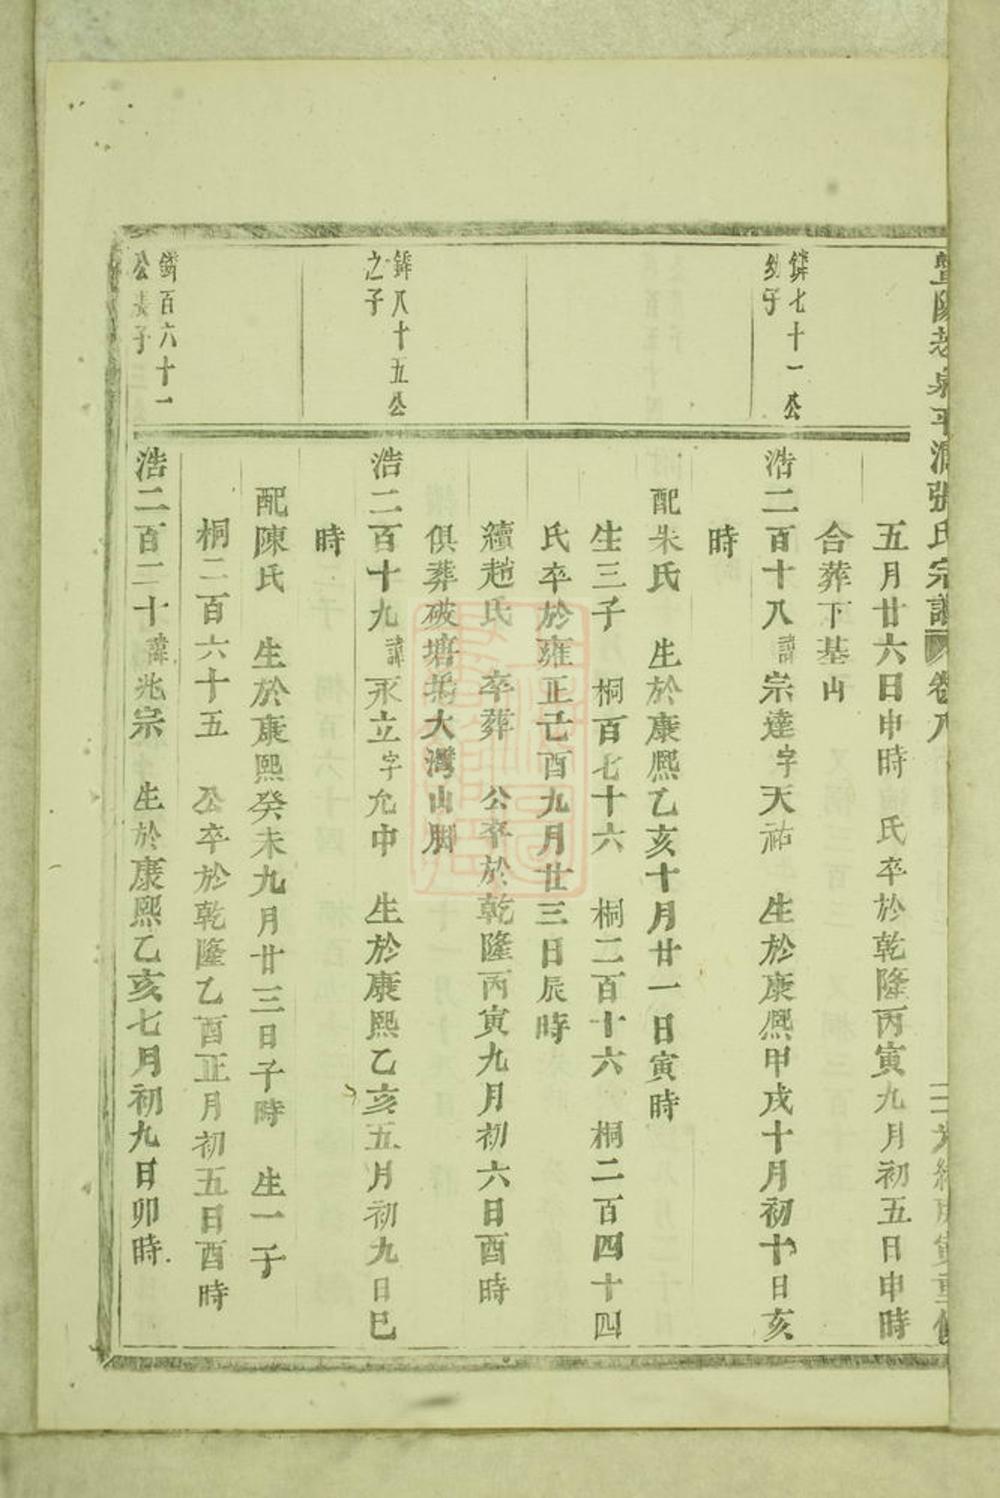 暨陽老泉平濶張氏宗譜 卷八
五月廿六日申時 氏卒於乾隆丙寅九月初五日申時
合葬下基山
鏻七十一公
幼子
浩二百十八諱宗達字天祐 生於康熙甲戌十月初十日亥
時
配朱氏 生於康熙乙亥十月廿一日寅時
生三子 桐百七十六 桐二百十六 桐二百四十四
氏卒於雍正己酉九月廿三日辰時
續趙氏 卒葬 公卒於乾隆丙寅九月初六日酉時
俱葬破塘塢大灣山脚
鏻八十五公
之子
浩二百十九諱永立字允中 生於康熙乙亥五月初九日巳
時
配陳氏 生於康熙癸未九月廿三日子時 生一子
桐二百六十五 公卒於乾隆乙酉正月初五日酉時
鏻百六十一
公長子
浩二百二十諱兆宗 生於康熙乙亥七月初九日卯時